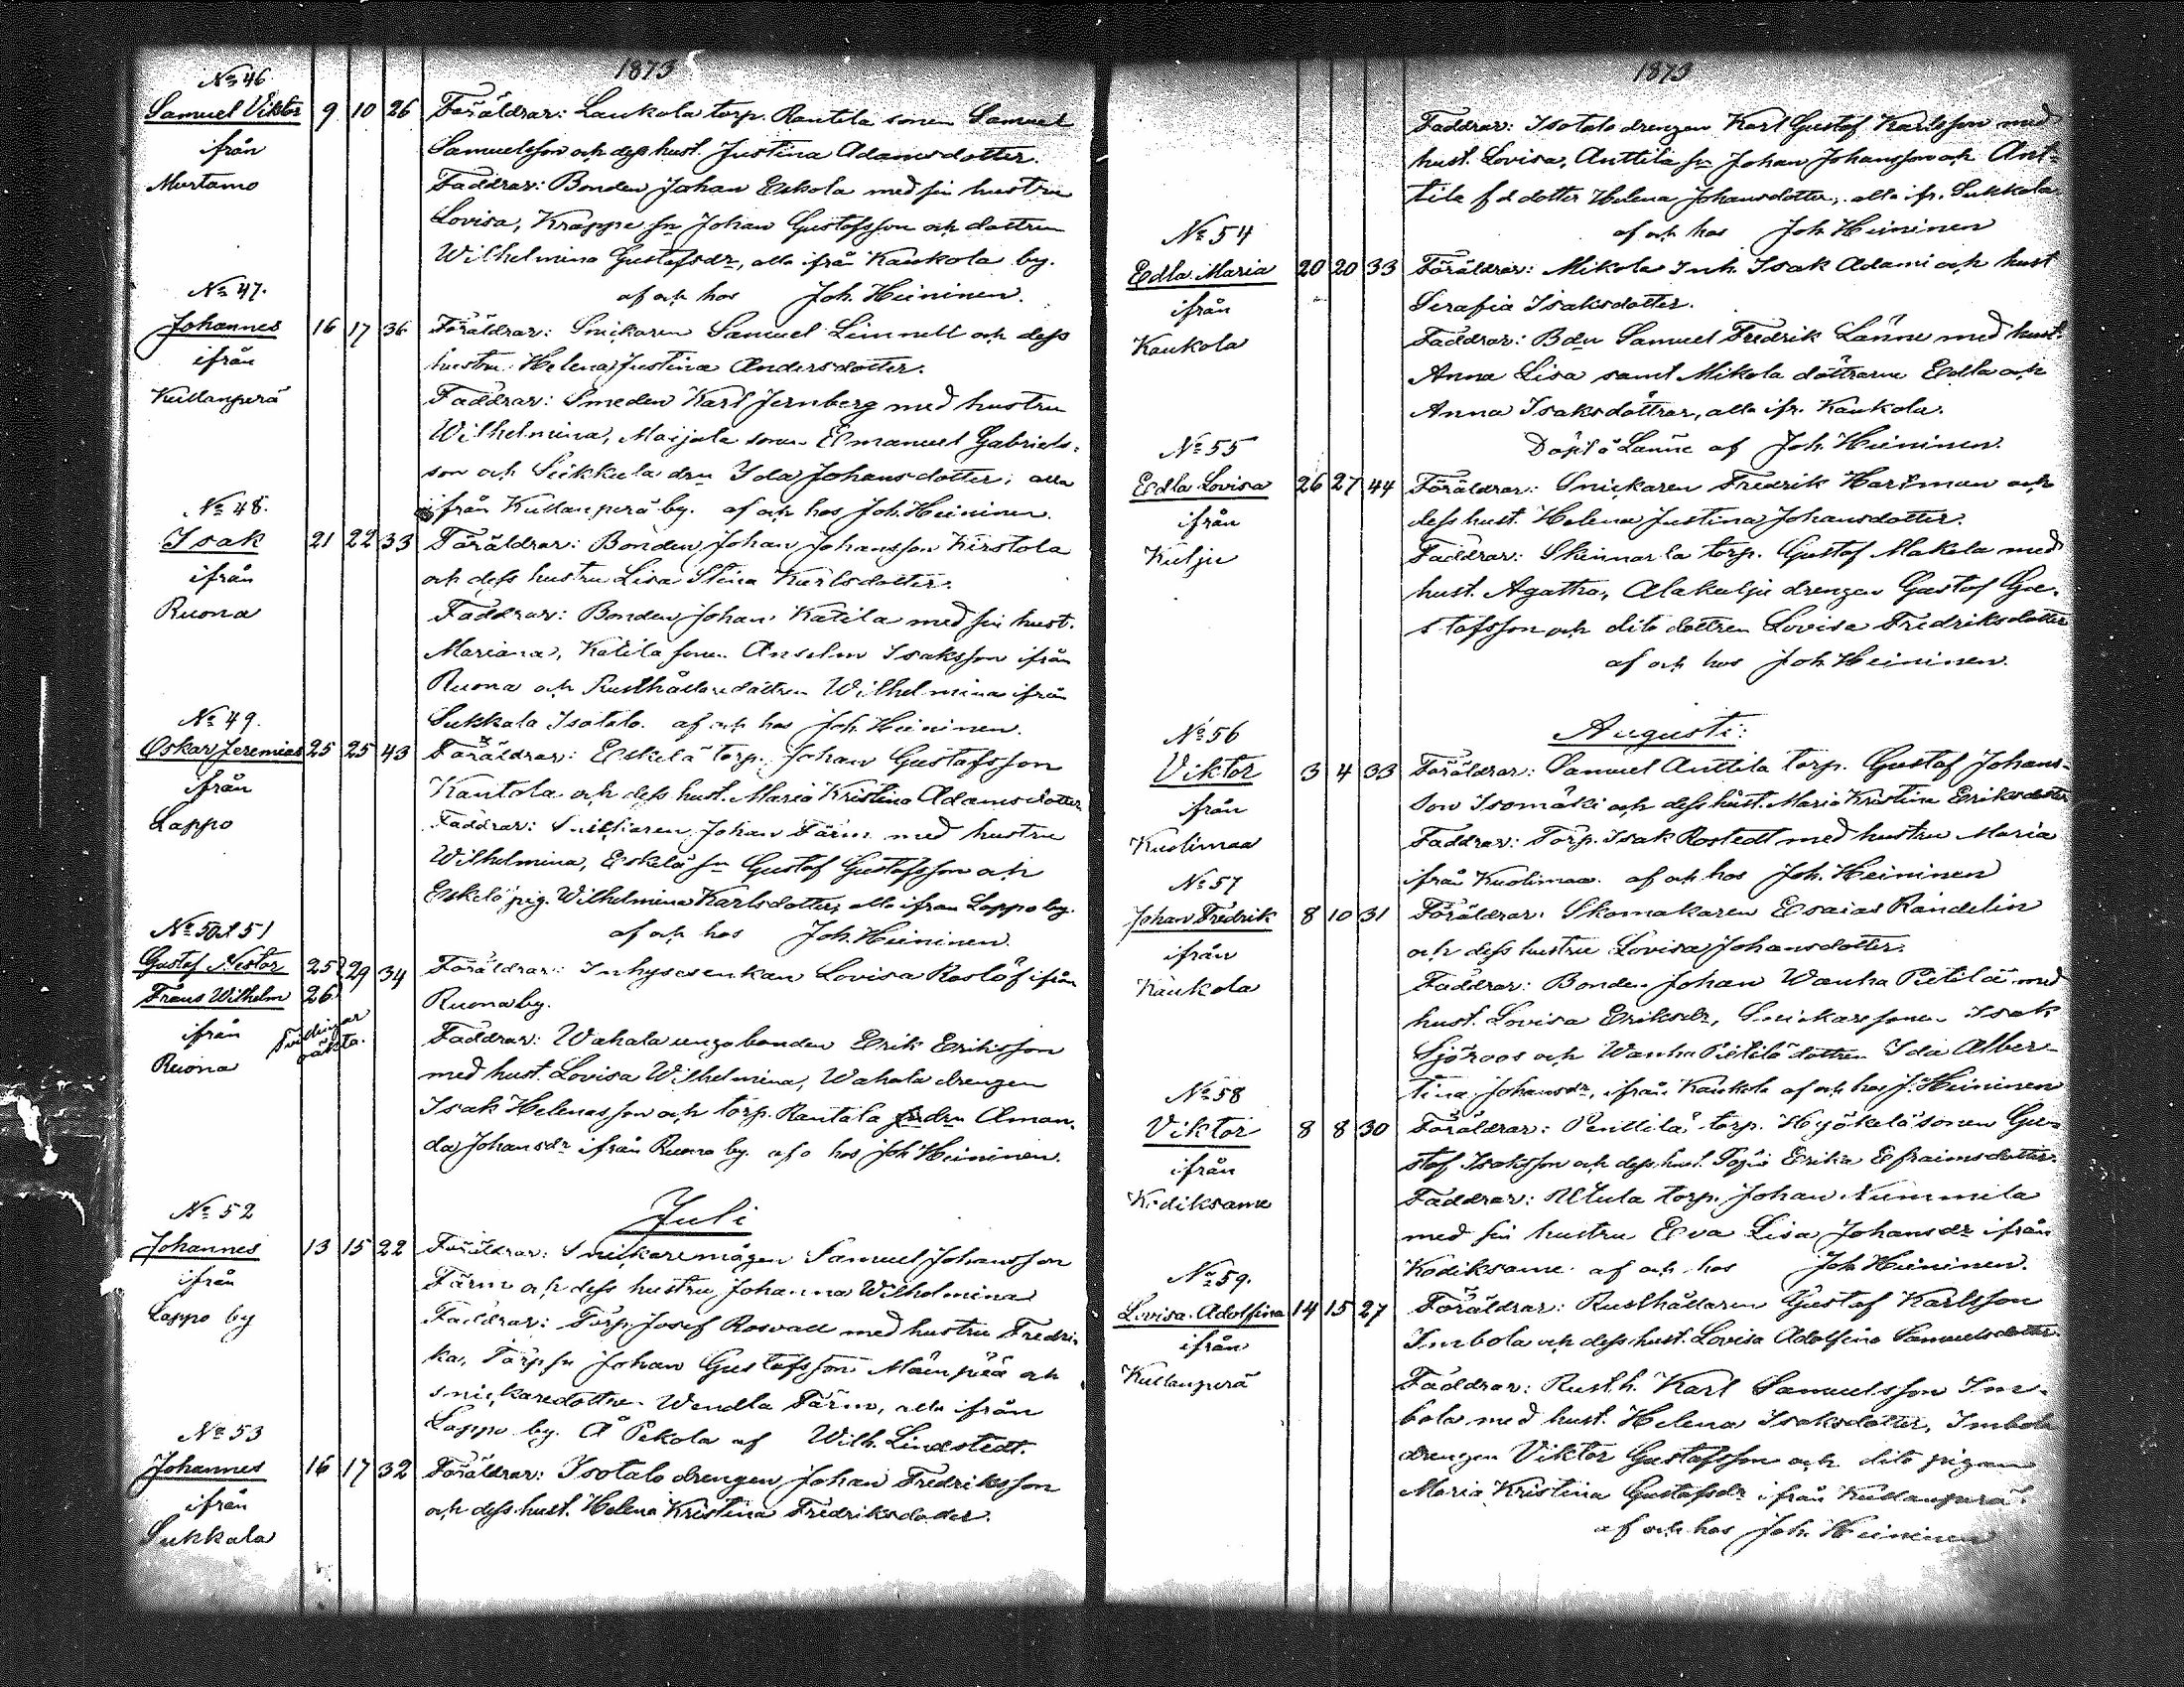 1873
No 46
Samuel Viktor 9 10 26 Föräldrar: Laukola torp. Rantila sonen Samuel
ifrån Samuelsson och dess hust. Justina Adamsdotter.
Murtamo Faddrar: Bonden Johan Eskola med sin hustru
Lovisa, Krappe sn Johan Gustafsson och dottren
Wilhelmina Gustafsdr, alla ifrån Kaukola by.
af och hos Joh. Heininen.
No 47.
Johannes 16 17 36 Föräldrar: Snickaren Samuel Limnell och dess
ifrån hustru Helena Justina Andersdotter.
Kullanperä Faddrar: Smeden Karl Jernberg med hustru
Wilhelmina, Maijala sonen Emanuel Gabriels-
son och Seikkula drn Ida Johansdotter; alla
ifrån Kullanperä by. af och hos Joh. Heininen.
No 48.
Isak 21 22 33 Föräldrar: Bonden Johan Johansson Kirstola
ifrån och dess hustru Lisa Stina Karlsdotter.
Ruona Faddrar: Bonden Johan Katila med sin hust.
Mariana, Katila sonen Anselm Isaksson ifrån
Ruona och Rusthållaredottren Wilhelmina ifrån
Sukkala Isotalo. af och hos Joh. Heininen.
No 49.
Oskar Jeremias 25 25 43 Föräldrar: Eskelä torp. Johan Gustafsson
ifrån Kantola och dess hust. Maria Kristina Adamsdotter
Lappo Faddrar: Snickaren Johan Färm med hustru
Wilhelmina, Eskelä sn Gustaf Gustafsson och
Eskelä pig. Wilhelmina Karlsdotter, alla ifrån Lappo by.
af och hos Joh. Heininen.
No 50 & 51
Gustaf Nestor 25 29 34 Föräldrar: Inhysesenkan Lovisa Roslöf ifrån
Frans Wilhelm 26 Ruona by.
ifrån Tvillingar oäkta. Faddrar: Wahala unga bonden Erik Eriksson
Ruona med hust. Lovisa Wilhelmina, Wahala drengen
Isak Helenasson och torp. Rantala drn Aman-
da Johansdr ifrån Ruona by. af o hos Joh Heininen.
Juli
No 52
Johannes 13 15 22 Föräldrar: Snickaremågen Samuel Johansson
ifrån Färm och dess hustru Johanna Wilhelmina
Lappo by Faddrar: Torp. Josef Rosvall med hustru Fredri-
ka, Torp sn Johan Gustafsson Mäenpää och
snickaredottren Wendla Färm, alla ifrån
Lappo by. Å Pekola af Wilh. Lindstedt.
No 53
Johannes 16 17 32 Föräldrar: Isotalo drengen Johan Fredriksson
ifrån och dess hust. Helena Kristina Fredriksdotter.
Sukkala
1873
Faddrar: Isotalo drengen Karl Gustaf Karlsson med
hust. Lovisa, Anttila sn Johan Johansson och Ant-
tila f d dotter Helena Johansdotter, alla ifr. Sukkala
af och hos Joh Heininen
No 54
Edla Maria 20 20 33 Föräldrar: Mikola Inh. Isak Adami och hust
ifrån Serafia Isaksdotter.
Kaukola Faddrar: Bdn Samuel Fredrik Länne med hust.
Anna Lisa samt Mikola döttrarne Edla och
Anna Isaksdöttrar, alla ifr. Kaukola.
Döpt å Länne af Joh. Heininen.
No 55
Edla Lovisa 26 27 44 Föräldrar: Snickaren Fredrik Hartman och
ifrån dess hust. Helena Justina Johansdotter.
Kulju Faddrar: Skinnarla torp. Gustaf Makela med
hust. Agatha, Alakulju drengen Gustaf Gu-
stafsson och dito dottren Lovisa Fredriksdotter
af och hos Joh Heininen.
Augusti:
No 56
Viktor 3 4 33 Föräldrar: Samuel Anttila torp. Gustaf Johans-
ifrån son Isomäki och dess hust. Maria Kristina Eriksdotter
Kuolimaa Faddrar: Torp. Isak Rostedt med hustru Maria
ifrån Kuolimaa. af och hos Joh. Heininen
No 57
Johan Fredrik 8 10 31 Föräldrar: Skomakaren Esaias Randelin
ifrån och dess hustru Lovisa Johansdotter.
Kaukola Faddrar: Bonden Johan Wanha Pietilä med
hust. Lovisa Eriksdr, Snickaresonen Isak
Sjöroos och Wanha Pietilä dottren Ida Alber-
tina Johansdr, ifrån Kaukola af och hos J. Heininen
No 58
Viktor 8 8 30 Föräldrar: Penttilä torp. Hyökelä sonen Gu-
ifrån staf Isaksson och dess hust. Sofia Erika Efraimsdotter.
Kodiksame Faddrar: Utula torp. Johan Nummila
med sin hustru Eva Lisa Johansdr ifrån
Kodiksame. af och hos Joh Heininen.
No 59.
Lovisa Adolfina 14 15 27 Föräldrar: Rusthållaren Gustaf Karlsson
ifrån Imbola och dess hust. Lovisa Adolfina Samuelsdotter.
Kullanperä Faddrar: Rusth. Karl Samuelsson Im-
bola med hust. Helena Isaksdotter, Imbola
drengen Viktor Gustafsson och dito pigan
Maria Kristina Gustafsdr ifrån Kullanperä.
af och hos Joh. Heininen